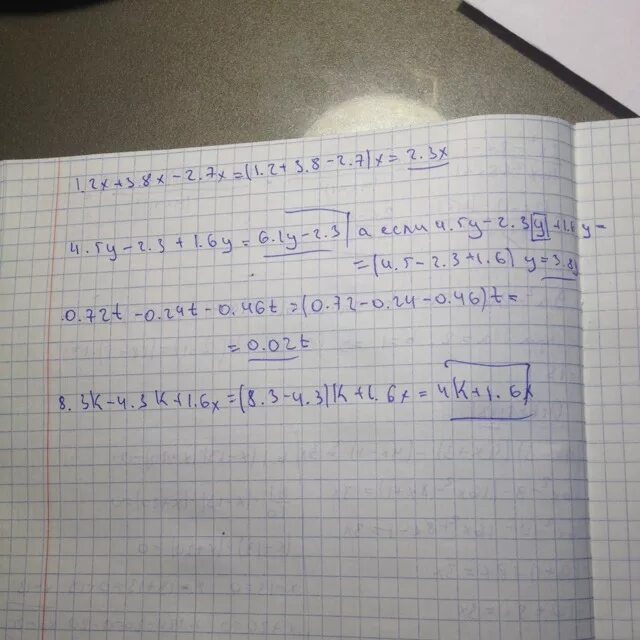 1.2x+3.8x-2.7x=(1.2+3.8-2.7)x=2.3x
4.5y-2.3+1.6y=6.1y-2.3 а если 4.5y-2.3y+1.6y=
=(4.5-2.3+1.6)y=3.8y
0.72t-0.24t-0.46t=(0.72-0.24-0.46)t=
=0.02t
8.3k-4.3k+1.6x=(8.3-4.3)k+1.6x=4k+1.6x